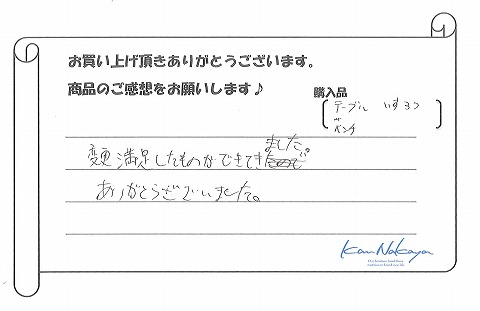 お買い上げ頂きありがとうございます。
商品のご感想をお願いします♪
購入品
テーブル いす3つ
ベンチ
満足したものができてきました。
ありがとうございました。
Kan Nakaya